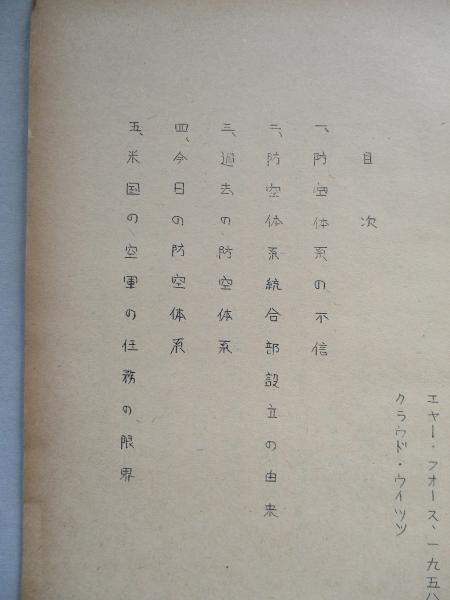 エヤー・フォース、一九五八
クラウド・ウイツツ
目次
一、防空体系の不信
二、防空体系統合部設立の由来
三、過去の防空体系
四、今日の防空体系
五、米国の空軍の任務の限界